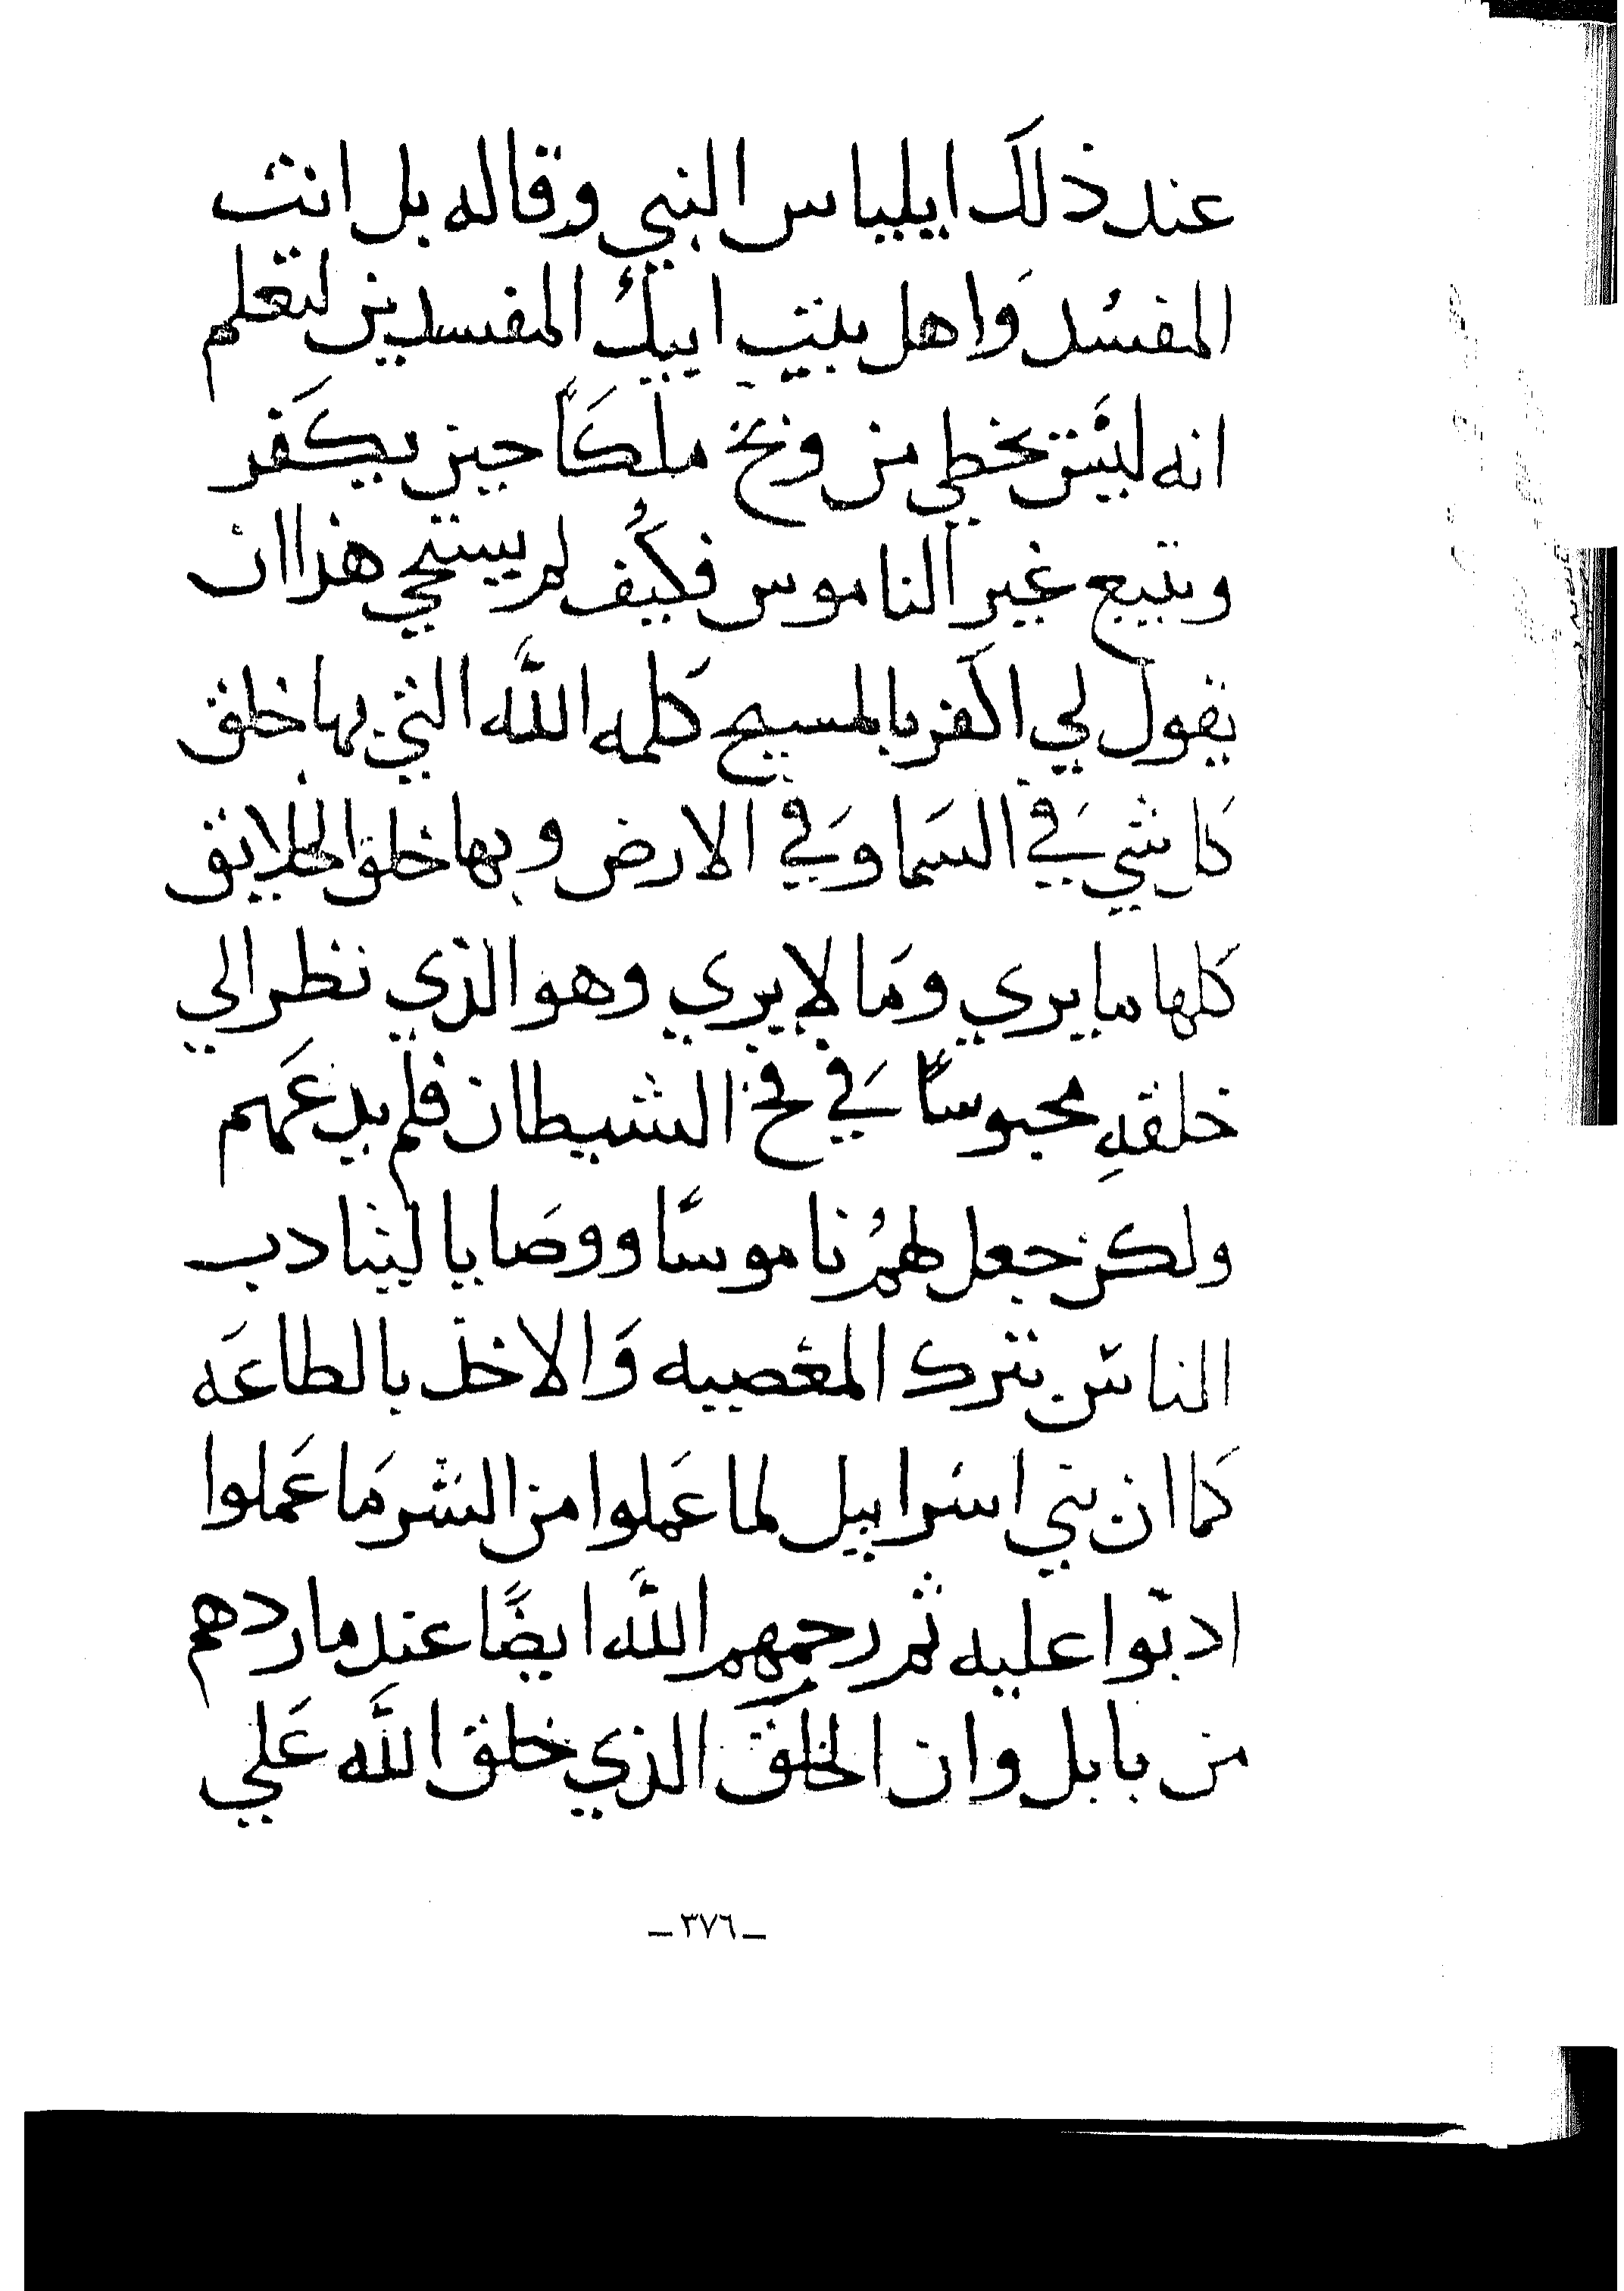 عند ذلك ايلياس النبي وقاله بل انت
المفسد واهل بيت ابيك المفسدين لتعلم
انه ليس يخطي من وبخ ملكاً حين يكفر
ويتبع غير الناموس فكيف لم يستحي هذا ان
يقول لي اكفر بالمسيح كلمه الله التي بها خلق
كل شي في السما وفي الارض وبها خلق الخلايق
كلها ما يري وما لا يري وهو الذي نظر الي
خلقهِ محبوساً في فخ الشيطان فلم يدعهم
ولكن جعل لهم ناموسًا ووصايا ليتادب
الناس بترك المعصيه والاخذ بالطاعه
كما ان بني اسراييل لما عملوا من الشر ما عملوا
ادبوا عليه ثم رحمهم الله ايضًا عند ما ردهم
من بابل وان الخلق الذي خلق الله علي
ـ ٣٧٦ ـ